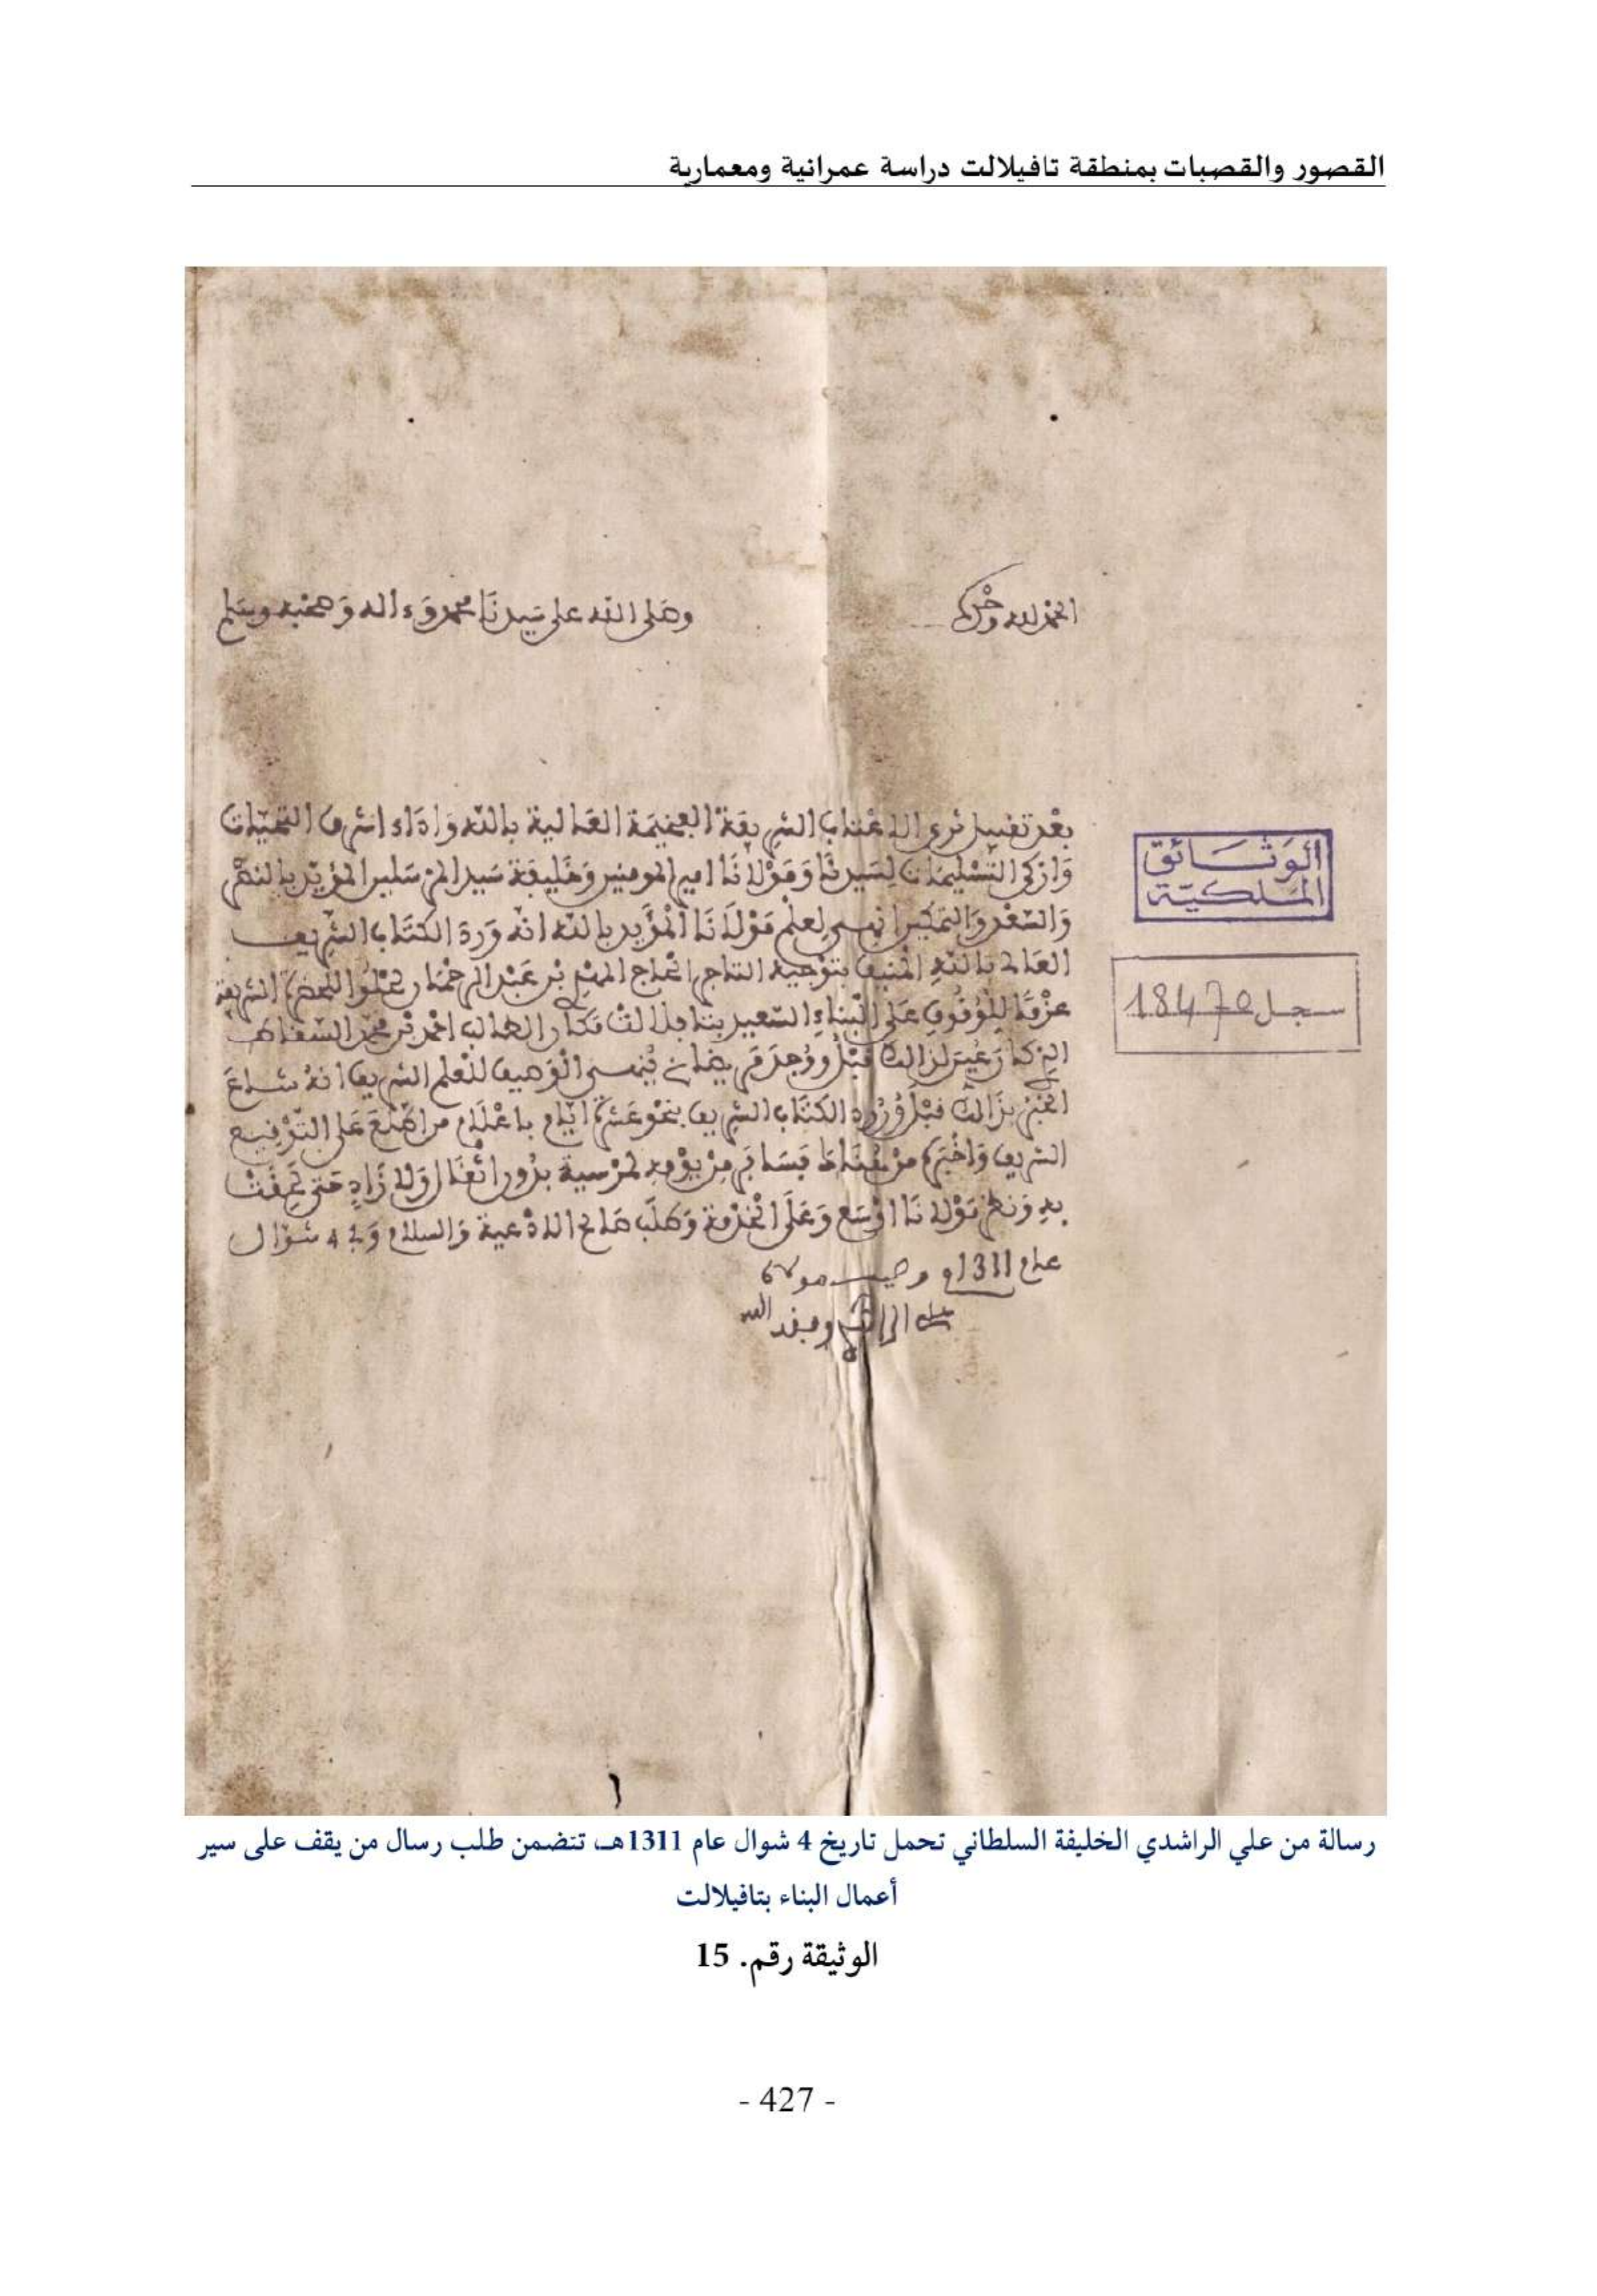 القصور والقصبات بمنطقة تافيلالت دراسة عمرانية ومعمارية
الحمد لله وحده
وصلى الله على سيدنا محمد وءاله وصحبه وسلم
بعد تقبيل ثرى الاعتاب الشريفة الفخيمة العالية بالله واداء اشرف التحيات
وازكى التسليمات لسيدنا ومولانا امير المومنين وخليفة سيد المرسلين المؤيد بالنصر
والسعد والتمكين لعلم مولانا المؤيد بالله انه ورد الكتاب الشريف
العالي بالله المنيف بتوجيه التاجر الحاج بن عبد الرحمان الشريفة
للوقوف على البناء السعيد بتافلالت فكان الطالب احمد بن محمد
لذالك قبل ووجد الوصيف للعلم الشريف انه شاع
الخبر بذالك قبل ورود الكتاب الشريف بنحو عشرة ايام باعلام من اطلع على التوقيع
الشريف واخبره من هناك فسافر من يومه بدون اثقال ولا زاد حتى
به ونظر مولانا اوسع وعلى الخدمة وطلب صالح الادعية والسلام وفي 4 شوال
عام 1311 وصيف مولاي
علي الراشدي وفقه الله
الوثائق
الملكية
سجل 18470
رسالة من علي الراشدي الخليفة السلطاني تحمل تاريخ 4 شوال عام 1311هـ، تتضمن طلب رسال من يقف على سير
أعمال البناء بتافيلالت
الوثيقة رقم. 15
- 427 -